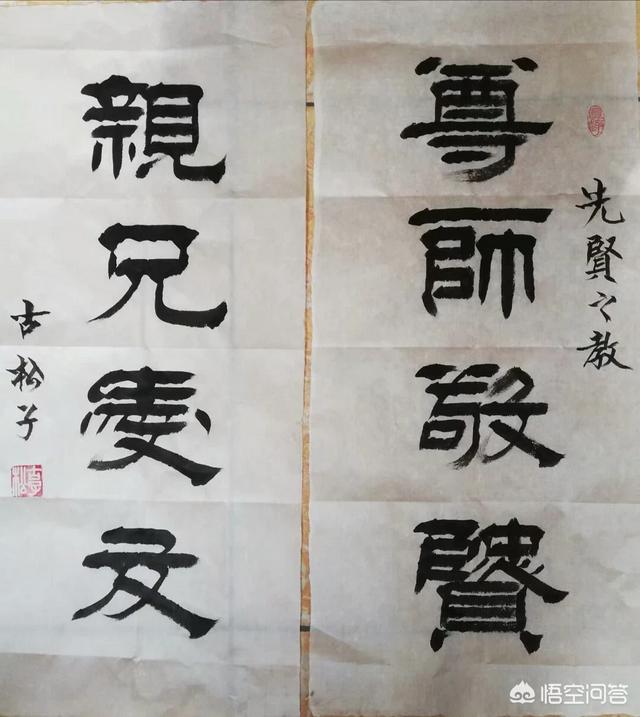 先賢之教
尊師敬賢
親兄愛友
古松子
悟空问答